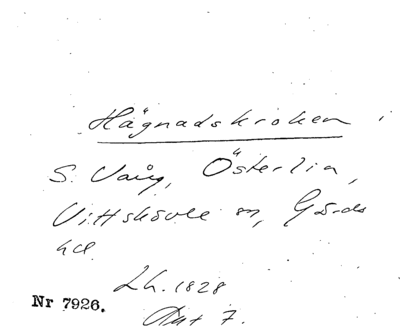 Hägnadskroken i
S. Vång, Österlia,
Vittskövle sn, Gärds
hd.
Lh. 1828
Akt 7.
Nr 7926.